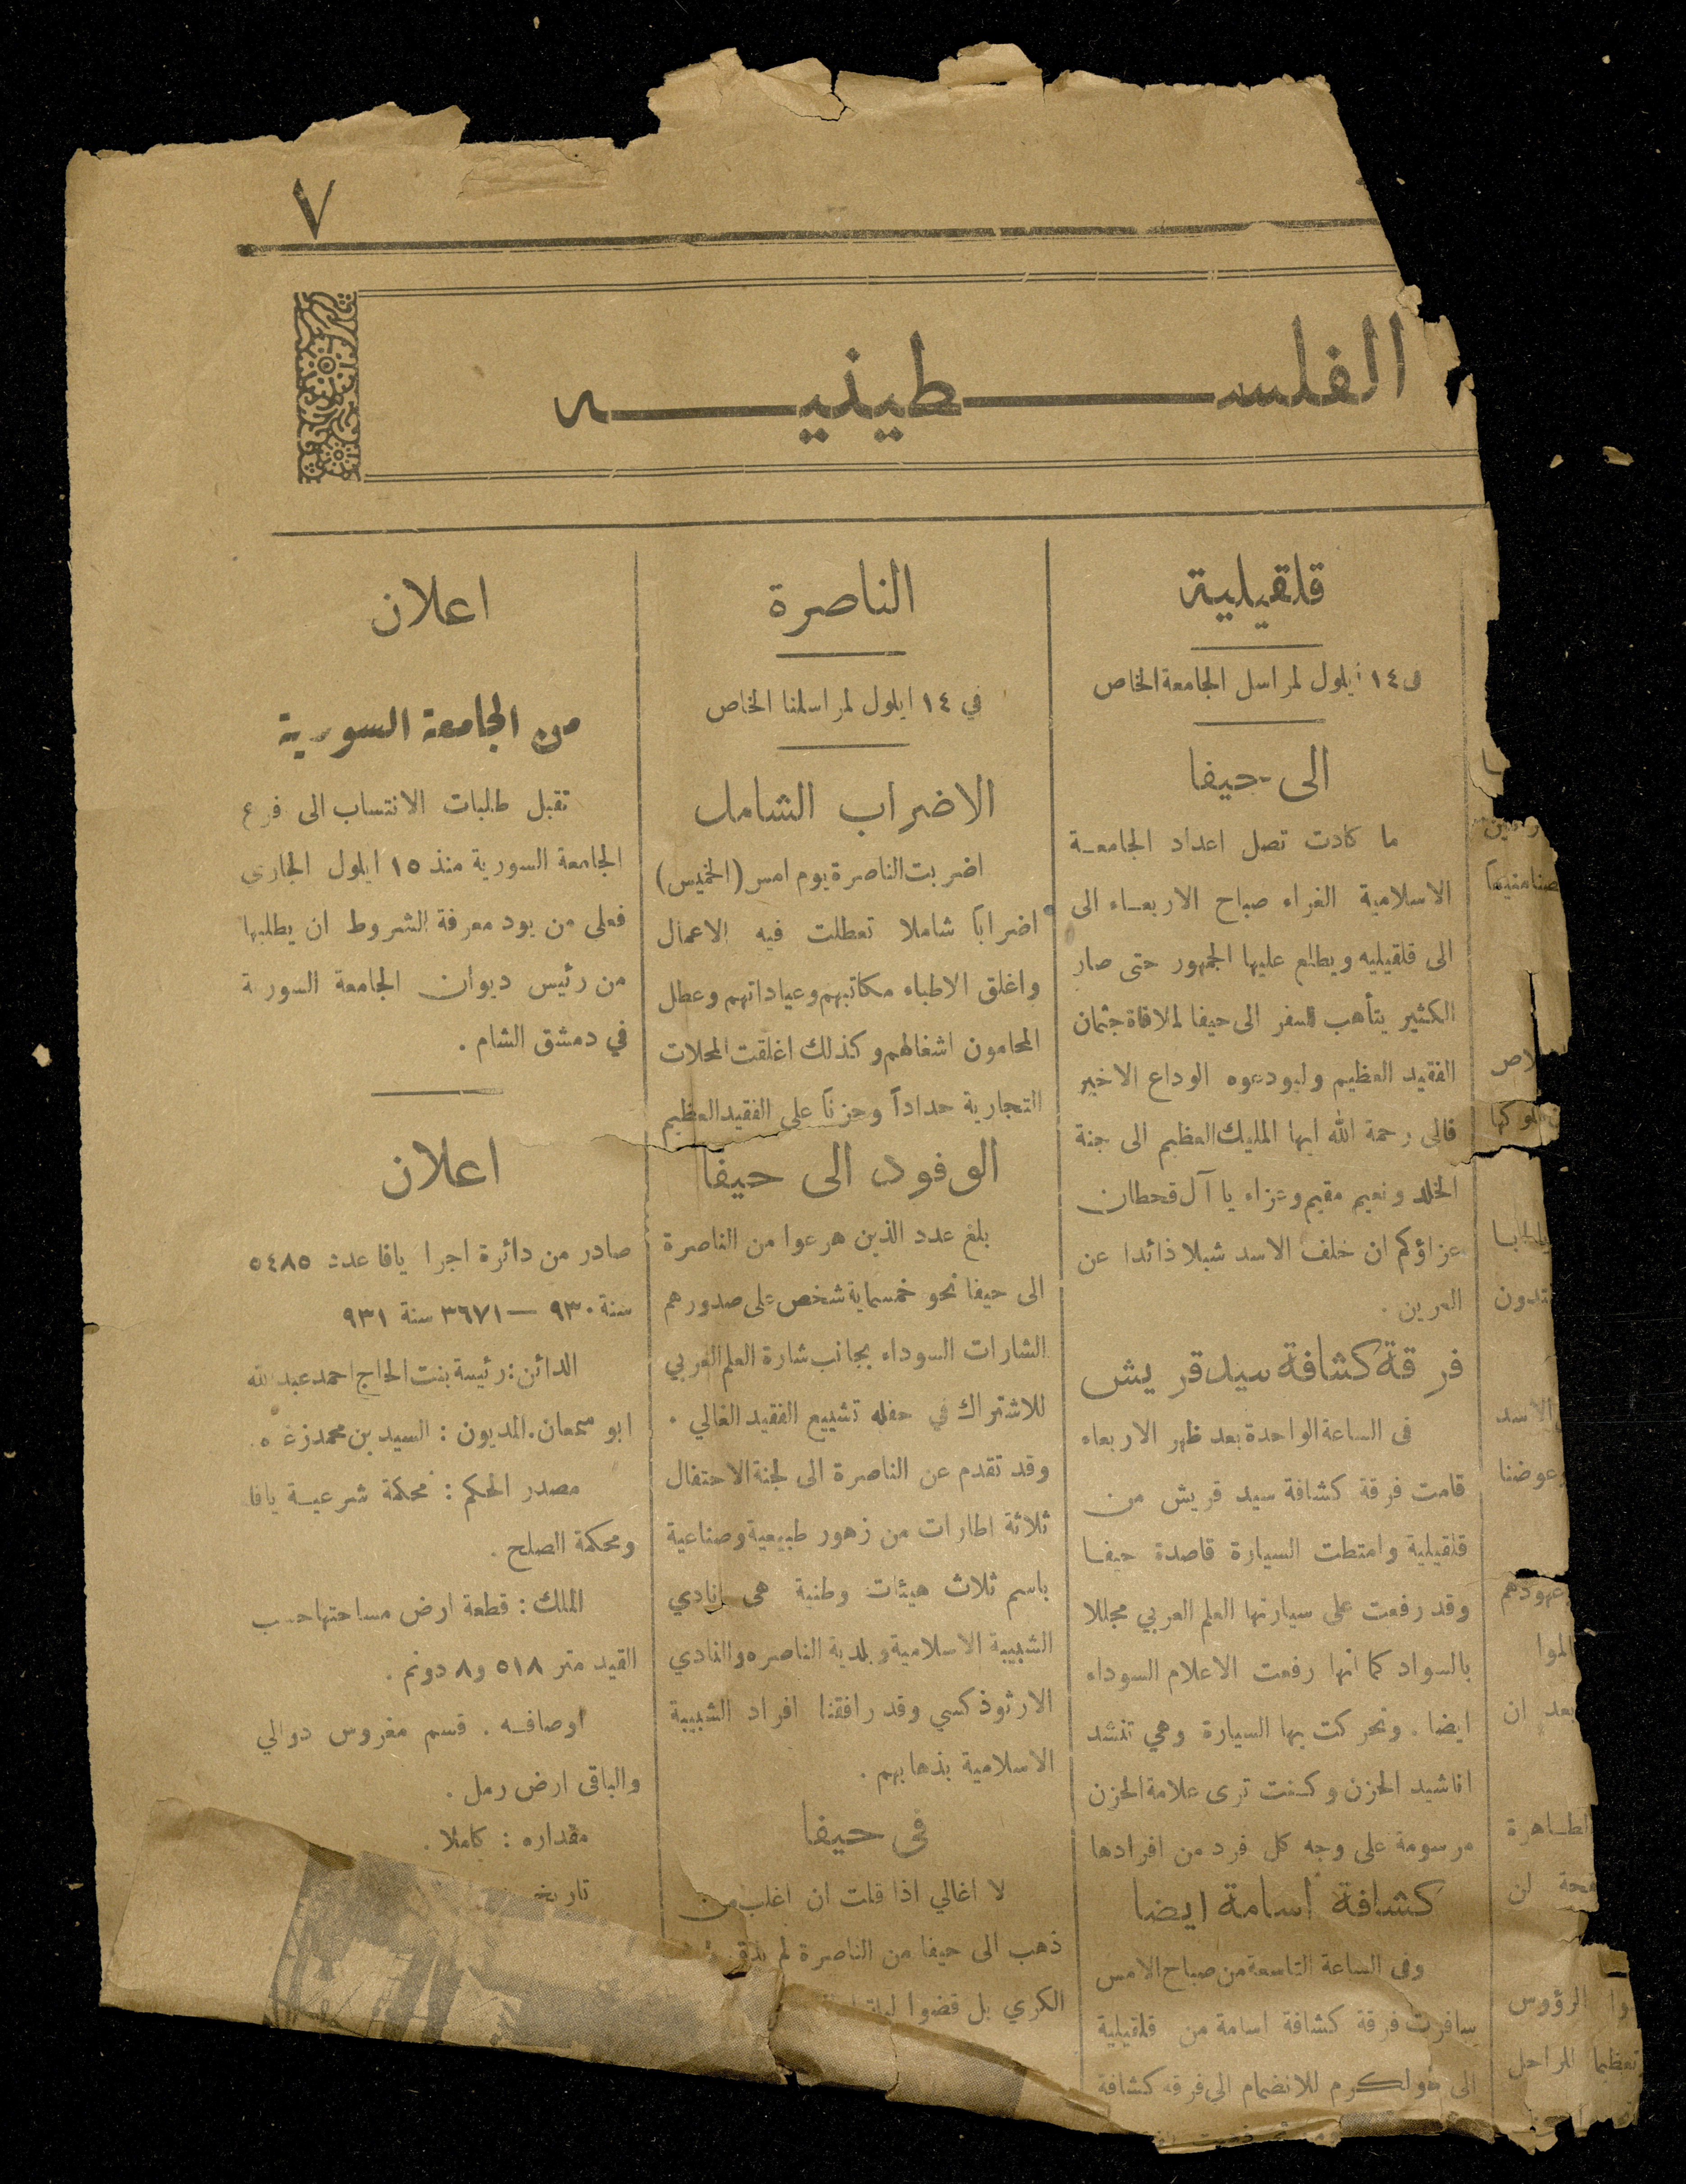 ٧
الفلسطينيه
لاص
ملوكها
تدون
الاسد
وعوضنا
عهودهم
بعد ان
الطاهرة
الرؤوس
المراحل
قلقيلية
١٤ ايلول لمراسل الجامعة الخاص
الى حيفا
ما كادت تصل اعداد الجامعة
الاسلامية الغراء صباح الاربعاء الى
الى قلقيليه ويطلع عليها الجمهور حتى صار
الكثير يتأهب للسفر الى حيفا لملاقاة جثمان
الفقيد العظيم وليودعوه الوداع الاخير
فالى رحمة الله ايها المليك العظيم الى جنة
الخلد ونعيم مقيم وعزاء يا آل قحطان
عزاؤكم ان خلف الاسد شبلا ذائدا عن
العرين .
فرقة كشافة سيد قريش
فى الساعة الواحدة بعد ظهر الاربعاء
قامت فرقة كشافة سيد قريش من
قلقيلية وامتطت السيارة قاصدة حيفا
وقد رفعت على سيارتها العلم العربي مجللا
بالسواد كما انها رفعت الاعلام السوداء
ايضا . وتحركت بها السيارة وهي تنشد
اناشيد الحزن وكنت ترى علامة الحزن
مرسومة على وجه كل فرد من افرادها
كشافة اسامة ايضا
وفى الساعة التاسعة من صباح الامس
سافرت فرقة كشافة اسامة من قلقيلية
الى طولكرم للانضمام الى فرقة كشافة
الناصرة
في ١٤ ايلول لمراسلنا الخاص
الاضراب الشامل
اضربت الناصرة يوم امس (الخميس)
اضراباً شاملا تعطلت فيه الاعمال
واغلق الاطباء مكاتبهم وعياداتهم وعطل
المحامون اشغالهم وكذلك اغلقت المحلات
التجارية حداداً وحزناً على الفقيد العظيم
الوفود الى حيفا
بلغ عدد الذين هرعوا من الناصرة
الى حيفا نحو خمسماية شخص على صدورهم
الشارات السوداء بجانب شارة العلم العربي
للاشتراك في حفله تشييع الفقيد الغالي .
وقد تقدم عن الناصرة الى لجنة الاحتفال
ثلاثة اطارات من زهور طبيعية وصناعية
باسم ثلاث هيئات وطنية هى نادي
الشبيبة الاسلامية وبلدية الناصره والنادي
الارثوذكسي وقد رافقنا افراد الشبيبة
الاسلامية بذهابهم .
فى حيفا
لا اغالي اذا قلت ان اغلب من
ذهب الى حيفا من الناصرة لم يذق
الكري بل قضوا
اعلان
من الجامعة السورية
تقبل طلبات الانتساب الى فرع
الجامعة السورية منذ ١٥ ايلول الجاري
فعلى من يود معرفة الشروط ان يطلبها
من رئيس ديوان الجامعة السورية
في دمشق الشام .
اعلان
صادر من دائرة اجرا يافا عدد ٥٤٨٥
سنة ٩٣٠ — ٣٦٧١ سنة ٩٣١
الدائن : رئيسة بنت الحاج احمد عبد الله
ابو سمعان . المديون : السيد بن محمد
مصدر الحكم : محكمة شرعية يافا
ومحكمة الصلح .
الملك : قطعة ارض مساحتها حسب
القيد متر ٥١٨ و٨ دونم .
اوصافه . قسم مغروس دوالي
والباقى ارض رمل .
مقداره : كاملا .
تاريخ